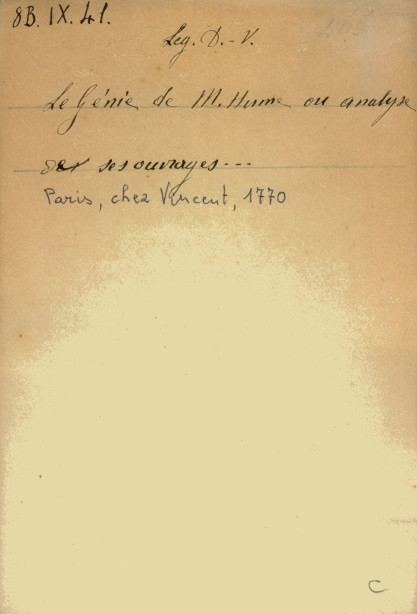 8B. IX. 41.
Leg. D.-V.
Le Génie de M. Hume ou analyse
de ses ouvrages...
Paris, chez Vincent, 1770
C